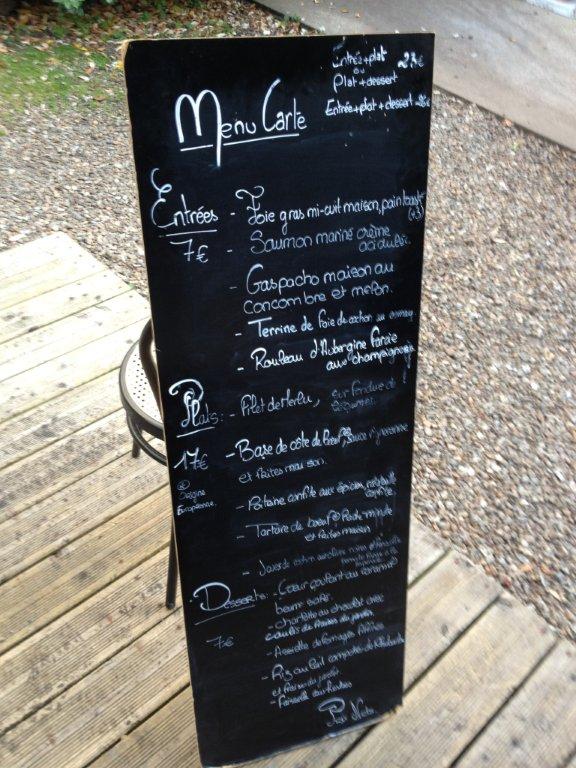 Entrée+plat 23€
ou
Plat+dessert
Entrée+plat+dessert 28€
Menu Carte
Entrées - Foie gras mi-cuit maison, pain toasté
(+3)
7€ - Saumon mariné crème
acidulée.
- Gaspacho maison au
concombre et melon.
- Terrine de foie de cochon au
- Rouleau d'Aubergine Farcie
aux champignons
Plats: - Filet de Merlu, sur fondue de
légumes.
17€ - Basse de côte de boeuf, sauce vigneronne
et frites maison.
Origine
Européenne.
- confite aux épices,
- Tartare de boeuf minute
et frites maison
- Joues de
Desserts: - Coeur coulant au caramel
beurre salé.
- charlotte au chocolat avec
coulis de fraises du jardin
7€ - Assiette de fromages Affinés
- Riz au lait compotée de Rhubarbe
et fraises du jardin
- Faisselle aux herbes
Prix Nets.